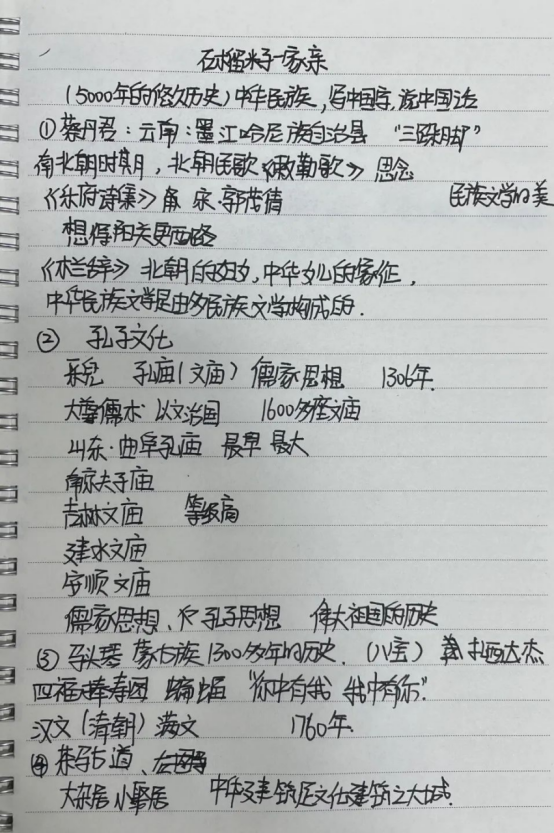 石榴籽一家亲
(5000年的悠久历史)中华民族,写中国字,说中国话
①蔡丹君:云南:墨江哈尼族自治县 “三跺脚”
南北朝时期,北朝民歌《敕勒歌》 思念
《乐府诗集》 宋·郭茂倩 民族文学的美
想得阳关更西路
《木兰辞》北朝的妇女,中华女儿的象征,
中华民族文学是由多民族文学构成的.
② 孔子文化
孔庙(文庙) 儒家思想 1306年.
大尊儒术 以文治国 1600多座文庙
山东·曲阜孔庙 最早 最大
南京夫子庙
吉林文庙 等级高
建水文庙
安顺文庙
儒家思想、孔子思想 伟大祖国的历史
③ 马头琴 蒙古族 1300多年的历史. (八宝) 扎西达杰
四福捧寿图 蝙蝠 “你中有我 我中有你”.
汉文(清朝)满文 1760年.
④ 茶马古道、
大杂居 小聚居 中华建筑是文化建筑之大成.